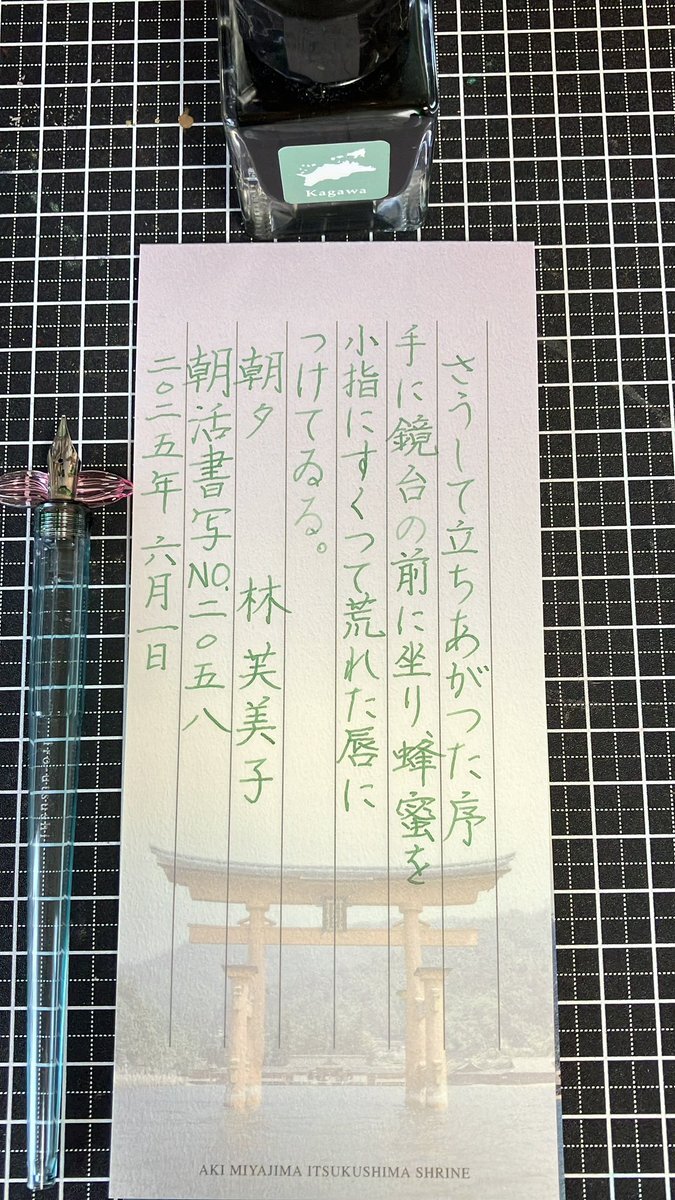 Kagawa
さうして立ちあがつた序
手に鏡台の前に坐り、蜂蜜を
小指にすくつて荒れた唇に
つけてゐる。
朝夕　林芙美子
朝活書写NO.二〇五八
二〇二五年 六月一日
AKI MIYAJIMA ITSUKUSHIMA SHRINE